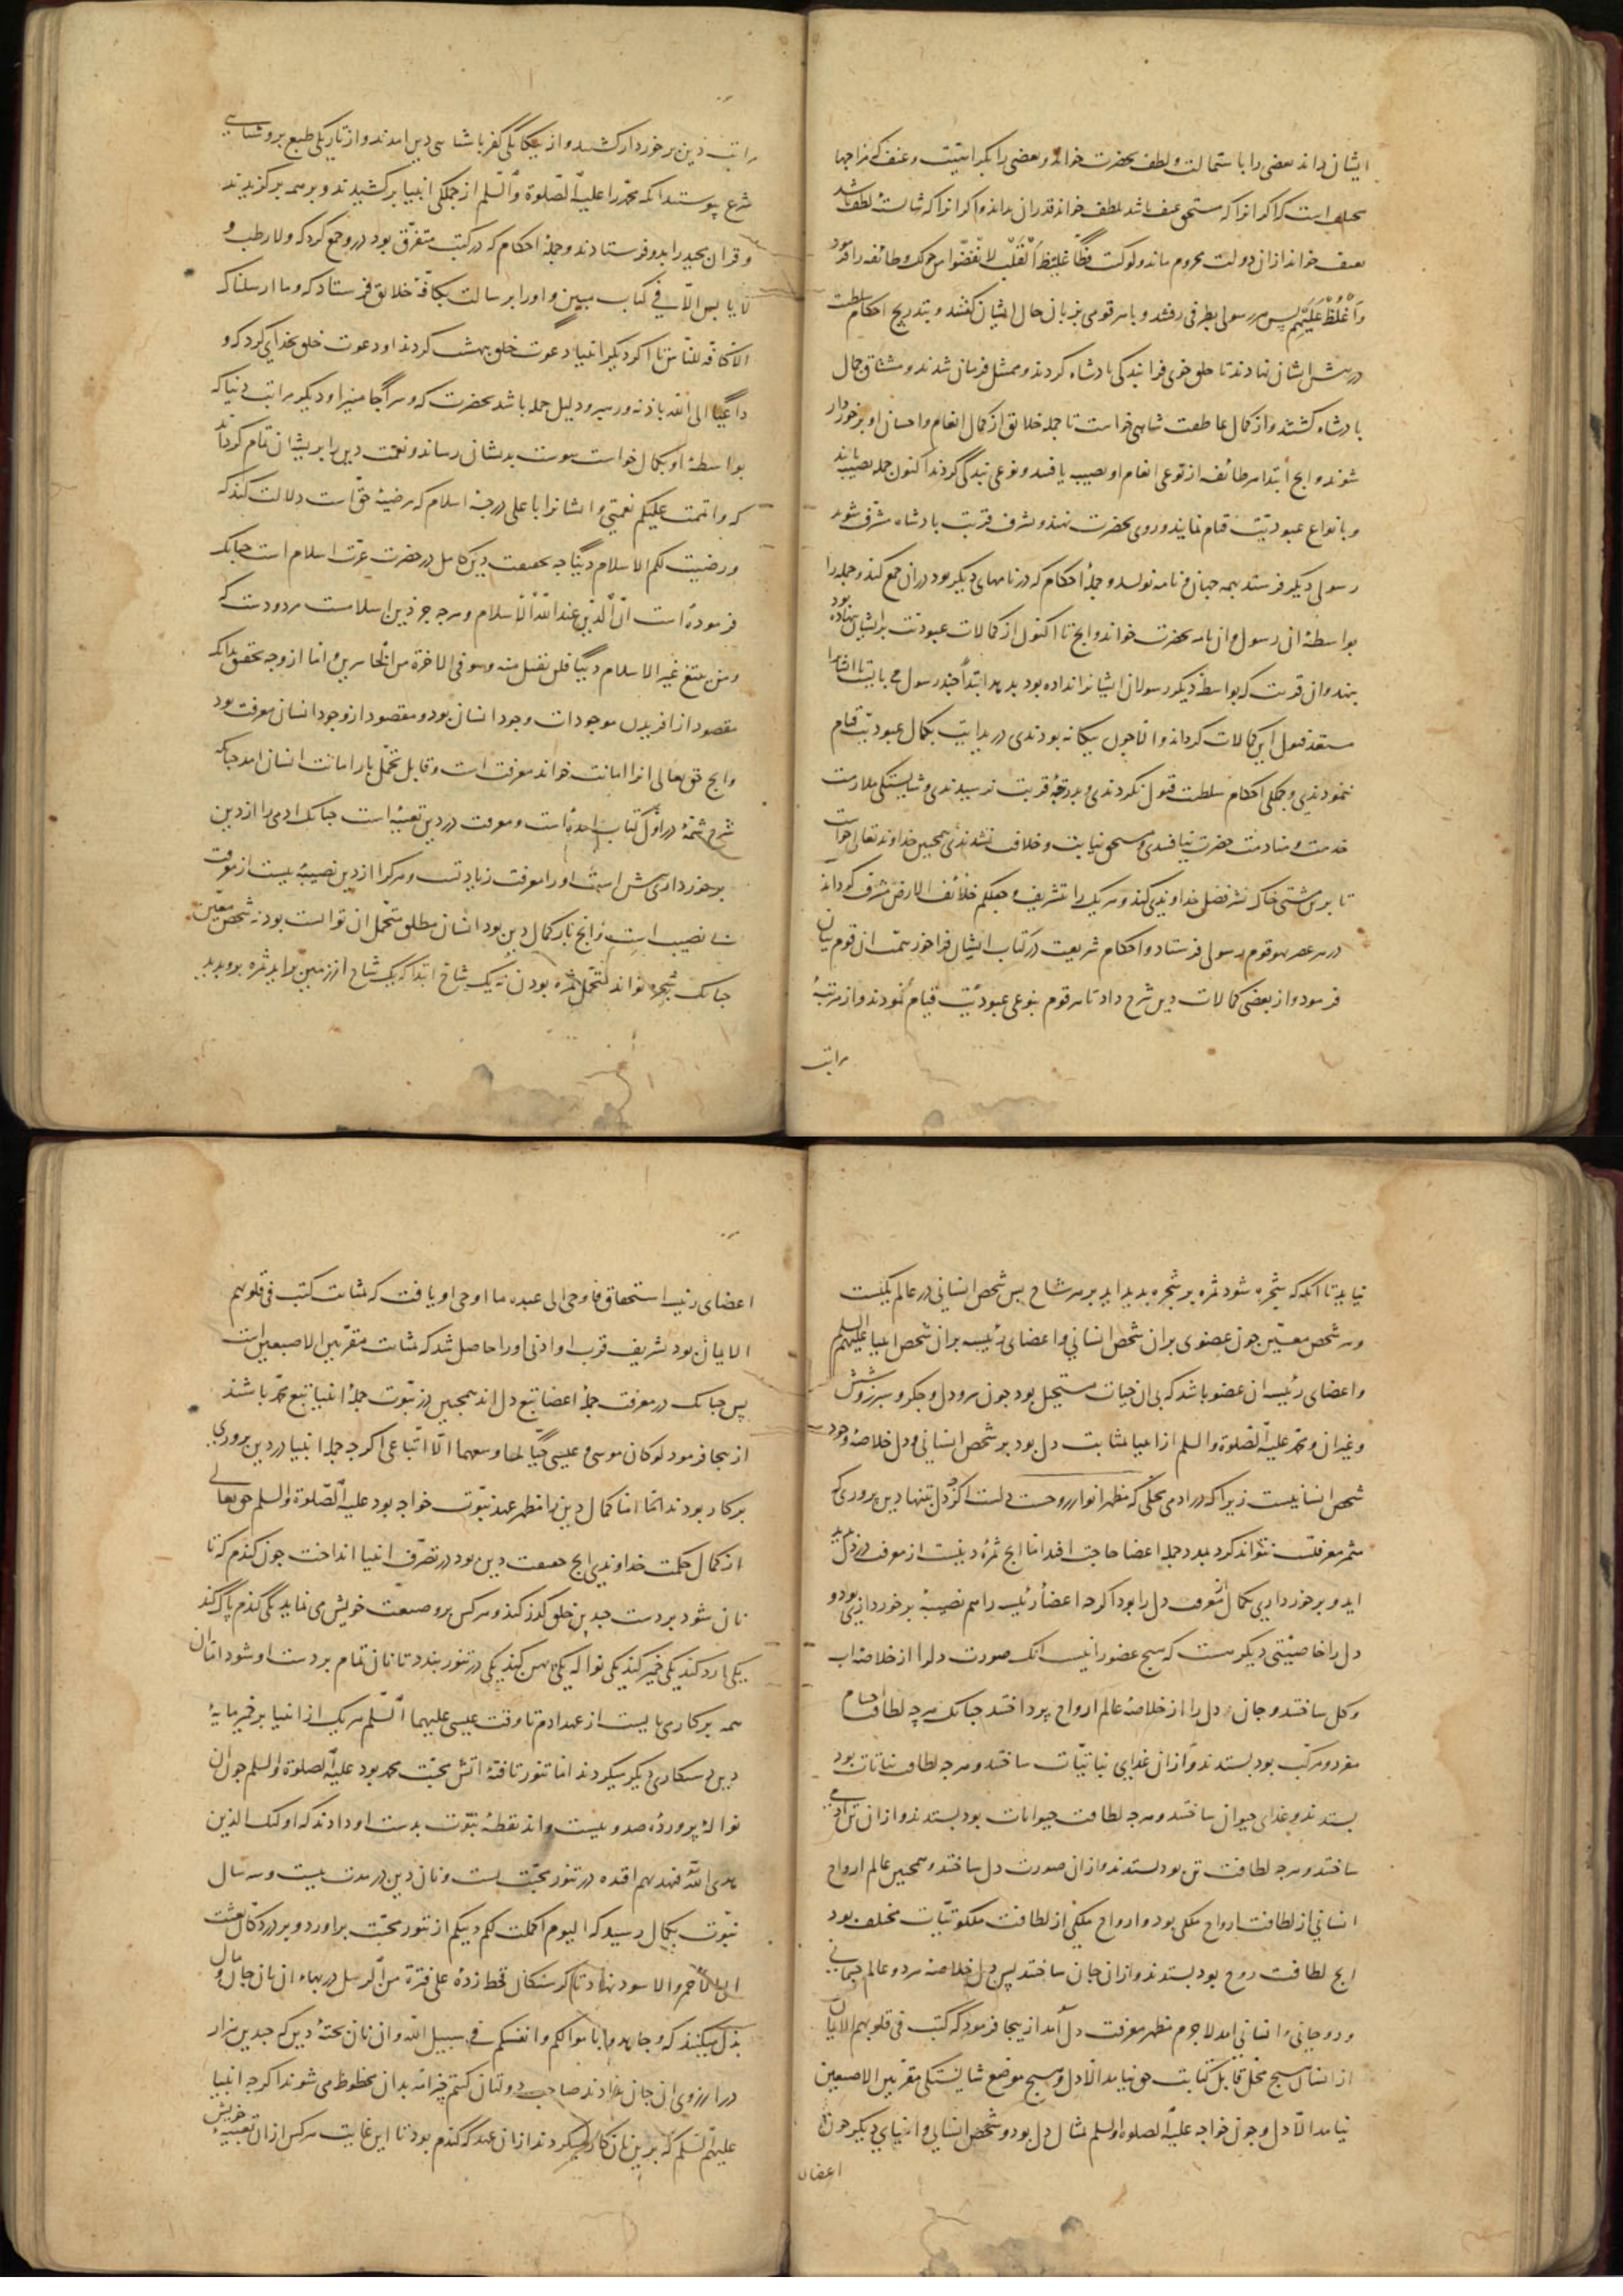 ایشان داند بعضی را باستمالت و لطف بحضرت خواند و بعضی را بکراهیت و عنف که مزاجها
مختلف است که اگر انرا که مستحق عنف باشد بلطف خواند قدر ان نداند و اگر انرا که شایستۀ لطف باشد
بعنف خواند از ان دولت محروم ماند ولو کنت فظّا غلیظ القلب لانفضّوا من حولک و طائفه را فرمود
واغلظ علیهم پس هر رسولی بطرفی رفتند و با هر قومی بزبان حال ایشان گفتند و بتدریج احکام سلطنت
در پیش ایشان نهادند تا خلق خوی فرا بندگی پادشاه کردند و ممتثل فرمان شدند و مشتاق جمال
پادشاه گشتند و از کمال عاطفت شاهی خواست تا جمله خلائق از کمال انعام و احسان او برخوردار
شوند و انج ابتدا هر طائفه از نوعی انعام او نصیب یافتند و نوعی بندگی کردند اکنون جمله نصیب یابند
و بانواع عبودیّت قیام نمایند و روی بحضرت نهند و بشرف قربت پادشاه مشرف شوند
رسولی دیگر فرستد بهمه جهان و نامه نویسد و جملۀ احکام که در نامهای دیگر بود در ان جمع کند و جمله را
بواسطۀ ان رسول و ان نامه بحضرت خواند و انج تا اکنون از کمالات عبودیّت بر ایشان ننهاده بود
بنهد و ان قربت که بواسطۀ دیگر رسولان ایشانرا نداده بود بدهد ابتدأ چند رسول می بایست تا ایشانرا
مستعد قبول این کمالات کرداند و الا چون بیگانه بودندی در بدایت بکمال عبودیّت قیام
ننمودندی و جملگی احکام سلطنت قبول نکردندی و بدرجۀ قربت نرسیدندی و شایستگی ملازمت
خدمت و منادمت حضرت نیافتندی و مستحق نیابت و خلافت نشدندی همچنین خداوند تعالی خواست
تا برین مشتی خاک نثر فضل خداوندی کند و هر یک را تشریف و جعلکم خلائف الارض مشرف کرداند
در هر عصر بهر قوم رسولی فرستاد و احکام شریعت در کتاب ایشان فراخور همّت ان قوم بیان
فرمود و از بعضی کمالات دین شرح داد تا هر قوم بنوعی عبودیّت قیام نمودند و از مرتبۀ
مراتب
مراتب دین برخوردار گشتند و از بیگانگی کفر باشناسی دین امدند و از تاریکی طبع بروشنایی
شرع پیوستند انکه محمّد را علیه الصّلوة والسّلم از جملگی انبیا برکشیدند و بر همه برگزیدند
و قران مجید را بدو فرستادند و جملۀ احکام که در کتب متفرّق بود در و جمع کرد که ولا رطب و
لا یابس الّا فی کتاب مبین و او را برسالت بکافّۀ خلائق فرستاد که وما ارسلناک
الّا کافّه للنّاس تا اکر دیگر انبیا دعوت خلق ببهشت کردند او دعوت خلق بخدای کرد که و
داعیًا الی الله باذنه و رهبر و دلیل جمله باشد بحضرت که وسراجًا منیرا و دیگر مراتب دنیا که
بواسطۀ او بکمال خواست پیوست بدیشان رساند و نعمت دین را بریشان تمام گرداند
که واتممت علیکم نعمتی و ایشانرا باعلی درجۀ اسلام که مرضیۀ حقّ است دلالت کند که
ورضیت لکم الاسلام دینًا چه بحقیقت دین کامل در حضرت عزّت اسلام است چنانک
فرموده است انّ الدّین عند الله الاسلام و هرچ جز دین اسلامست مردودست که
ومن یبتغ غیر الاسلام دینًا فلن یقبل منه وهو فی الاخرة من الخاسرین و امّا از وجه تحقیق بدانک
مقصود از افریدن موجودات وجود انسان بود و مقصود از وجود انسان معرفت بود
و انج حق تعالی انرا امانت خواند معرفت است و قابل تحمّل بار امانت انسان امد چنانک
شرح شمّۀ در اوّل کتاب امده است و معرفت در دین تعبیه است چنانک ادمی را از دین
برخورداری بیش است او را معرفت زیادتست و هر کرا از دین نصیبۀ نیست از معرفت
بی نصیب است و انج بار کمال دین بود انسان مطلق متحمّل ان توانست بود نه شخص معیّن
چنانک شجره تواند متحمّل ثمره بودن نه یک شاخ ابتدا که یک شاخ از زمین براید ثمره برو پدید
نیاید تا انکه که شجره شود ثمره بر شجره پدید اید بر هر شاخ پس شخص انسانی در عالم یکیست
و هر شخص معیّن چون عضوی بران شخص انسانی و اعضای رئیسه بران شخص انبیا علیهم السلم
و اعضای رئیسه ان عضو باشد که بی ان حیات مستحیل بود چون سر و دل و جگر و سپرز و شش
و غیر ان و محمّد علیه الصّلوة والسلم از انبیا بمثابت دل بود بر شخص انسانی و دل خلاصۀ وجود
شخص انسانیست زیرا که در ادمی محلّی که مظهر انوار روحست دلست اکر دل بتنها دین پروری که
مثمر معرفتست نتواند کرد بمدد جمله اعضا حاجت افتد اما انج ثمرۀ دینست از معرفت در دل پدید
اید و برخورداری بکمال از معرفت دل را بود اگرچه اعضأ رئیسه را هم نصیبۀ برخورداری بود و
دل را خاصیّتی دیگر هست که هیچ عضو را نیست انک صورت دل را از خلاصۀ اب
و گل ساختند و جان دل را از خلاصۀ عالم ارواح پرداختند چنانک هرچه لطافت اجسام
مفرد و مرکّب بود بستدند و از ان غذای نباتیّات ساختند و هرچه لطافت نباتات بود
بستدند و غذای حیوان ساختند و هرچه لطافت حیوانات بود بستدند و از ان تن ادمی
ساختند و هرچه لطافت تن بود بستدند و از ان صورت دل ساختند و همچنین عالم ارواح
انسانی از لطافت ارواح ملکی بود و ارواح ملکی از لطافت ملکوتیّات مختلف بود
انج لطافت روح بود بستدند و از ان جان ساختند پس دل خلاصۀ هر دو عالم جسمانی
و روحانی و انسانی امد لاجرم مظهر معرفت دل امد از ینجا فرمود که کتب فی قلوبهم الایمان
از انسان هیچ محل قابل کتابت حق نیامد الّا دل و هیچ موضع شایستگی مقرّ بین الاصبعین
نیامد الّا دل و چون خواجه علیه الصلوة والسلم مثال دل بود و شخص انسانی و انبیای دیگر چون
اعضای
اعضای رئیسه استحقاق فاوحی الی عبده ما اوحی او یافت که بمثابت کتب فی قلوبهم
الایمان بود تشریف قرب او ادنی او را حاصل شد که بمثابت مقرّ بین الاصبعین است
پس چنانک در معرفت جملۀ اعضا تبع دل اند همچنین در نبّوت جملۀ انبیا تبع محمّد باشند
از ینجا فرمود لو کان موسی و عیسی حیّا لما وسعهما الّا اتّباعی اگرچه جمله انبیا در دین پروری
بر کار بودند امّا کمال دین را مظهر عهد نبّوت خواجه بود علیه الصّلوة والسلم حق تعالی
از کمال حکمت خداوندی انج حقیقت دین بود در تصرّف انبیا انداخت چون گندم که تا
نان شود بر دست چندین خلق گذر کند و هر کس برو صنعت خویش می نماید یکی گندم پاک کند
یکی ارد کند یکی خمیر کند یکی نواله یکی پهن کند یکی در تنور بندد تا نان تمام بر دست او شود امّا ان
همه بر کار می بایست از عهد ادم تا وقت عیسی علیهما السّلم هر یک از انبیا بر خمیر مایۀ
دین دستکاری دیگر میکردند امّا تنور تافتۀ اتش محبّت محمد بود علیه الصلوة والسلم چون ان
نوالۀ پروردۀ صد و بیست واند نقطۀ نبّوت بدست او دادند که اولئک الذین
هدی الله فبهدیهم اقتده در تنور محبّت بست و نان دین در مدت بیست و سه سال
نبّوت بکمال رسید که الیوم اکملت لکم دینکم از تنور محبّت براورد و بر در دکّان بعثت
الی الاحمر والاسود نهاد تا گرسنگان قحط زدۀ علی فترة من الرسل در بهاء ان نان جان و مال
بذل میکنند که وجاهدوا باموالکم وانفسکم فی سبیل الله و ان نان پختۀ دین که چندین هزار
در ارزوی ان جان دادند صاحب دولتان کنتم خیر امّه بدان محظوظ می شوند اگرچه انبیا
علیهم السّلم که برین نان کار میکردند از ان عهد که گندم بود تا این غایت هر کس از ان تعبیۀ خویش